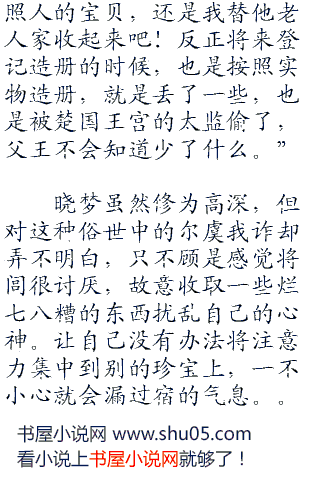 照人的宝贝，还是我替他老
人家收起来吧！反正将来登
记造册的时候，也是按照实
物造册，就是丢了一些，也
是被楚国王宫的太监偷了，
父王不会知道少了什么。”
晓梦虽然修为高深，但
对这种俗世中的尔虞我诈却
弄不明白，只不顾是感觉将
闾很讨厌，故意收取一些烂
七八糟的东西扰乱自己的心
神。让自己没有办法将注意
力集中到别的珍宝上，一不
小心就会漏过宿的气息。。
书屋小说网 www.shu05.com
看小说上书屋小说网就够了！